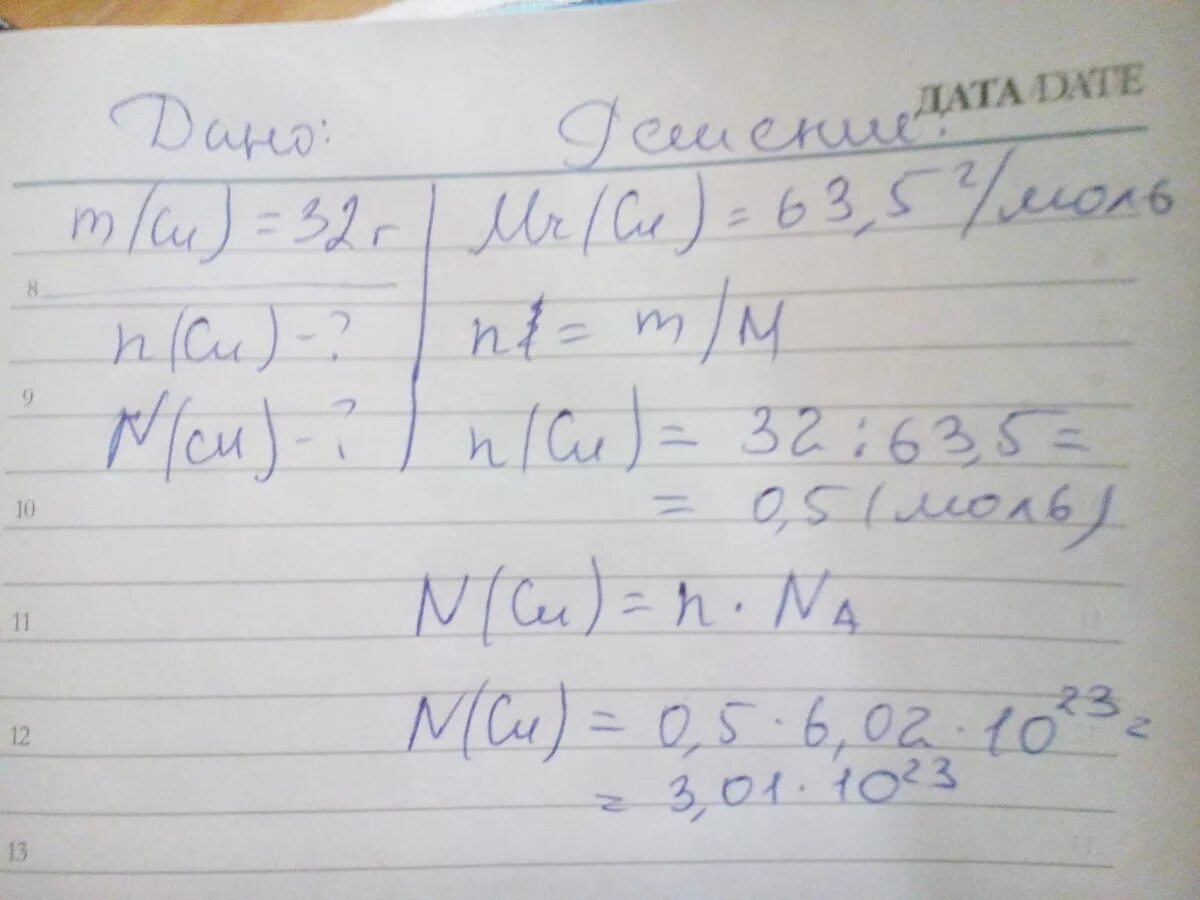 ДАТА/DATE
Дано: Решение:
m(Cu) = 32 г Mr(Cu) = 63,5 г/моль
8
n(Cu) - ? n = m/M
9
N(Cu) - ? n(Cu) = 32 : 63,5 =
10 = 0,5 (моль)
11 N(Cu) = n · NA
12 N(Cu) = 0,5 · 6,02 · 10²³ =
= 3,01 · 10²³
13